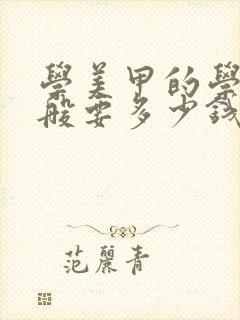 學美甲的學
般要多少錢
范麗青